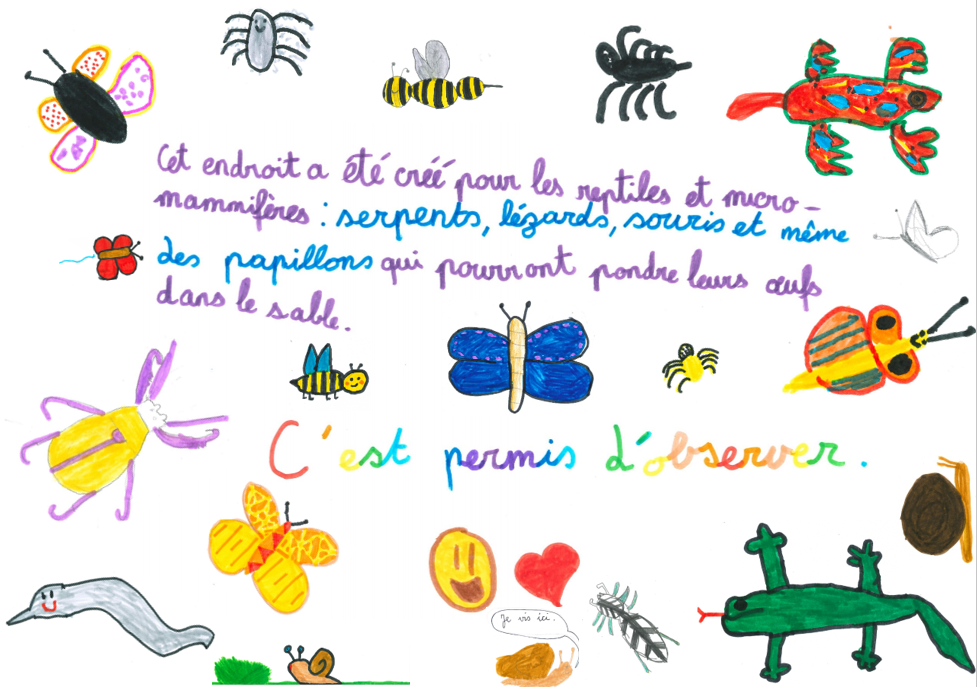 Cet endroit a été créé pour les reptiles et micro-
mammifères : serpents, lézards, souris et même
des papillons qui pourront pondre leurs œufs
dans le sable.
C'est permis d'observer.
Je vis ici.